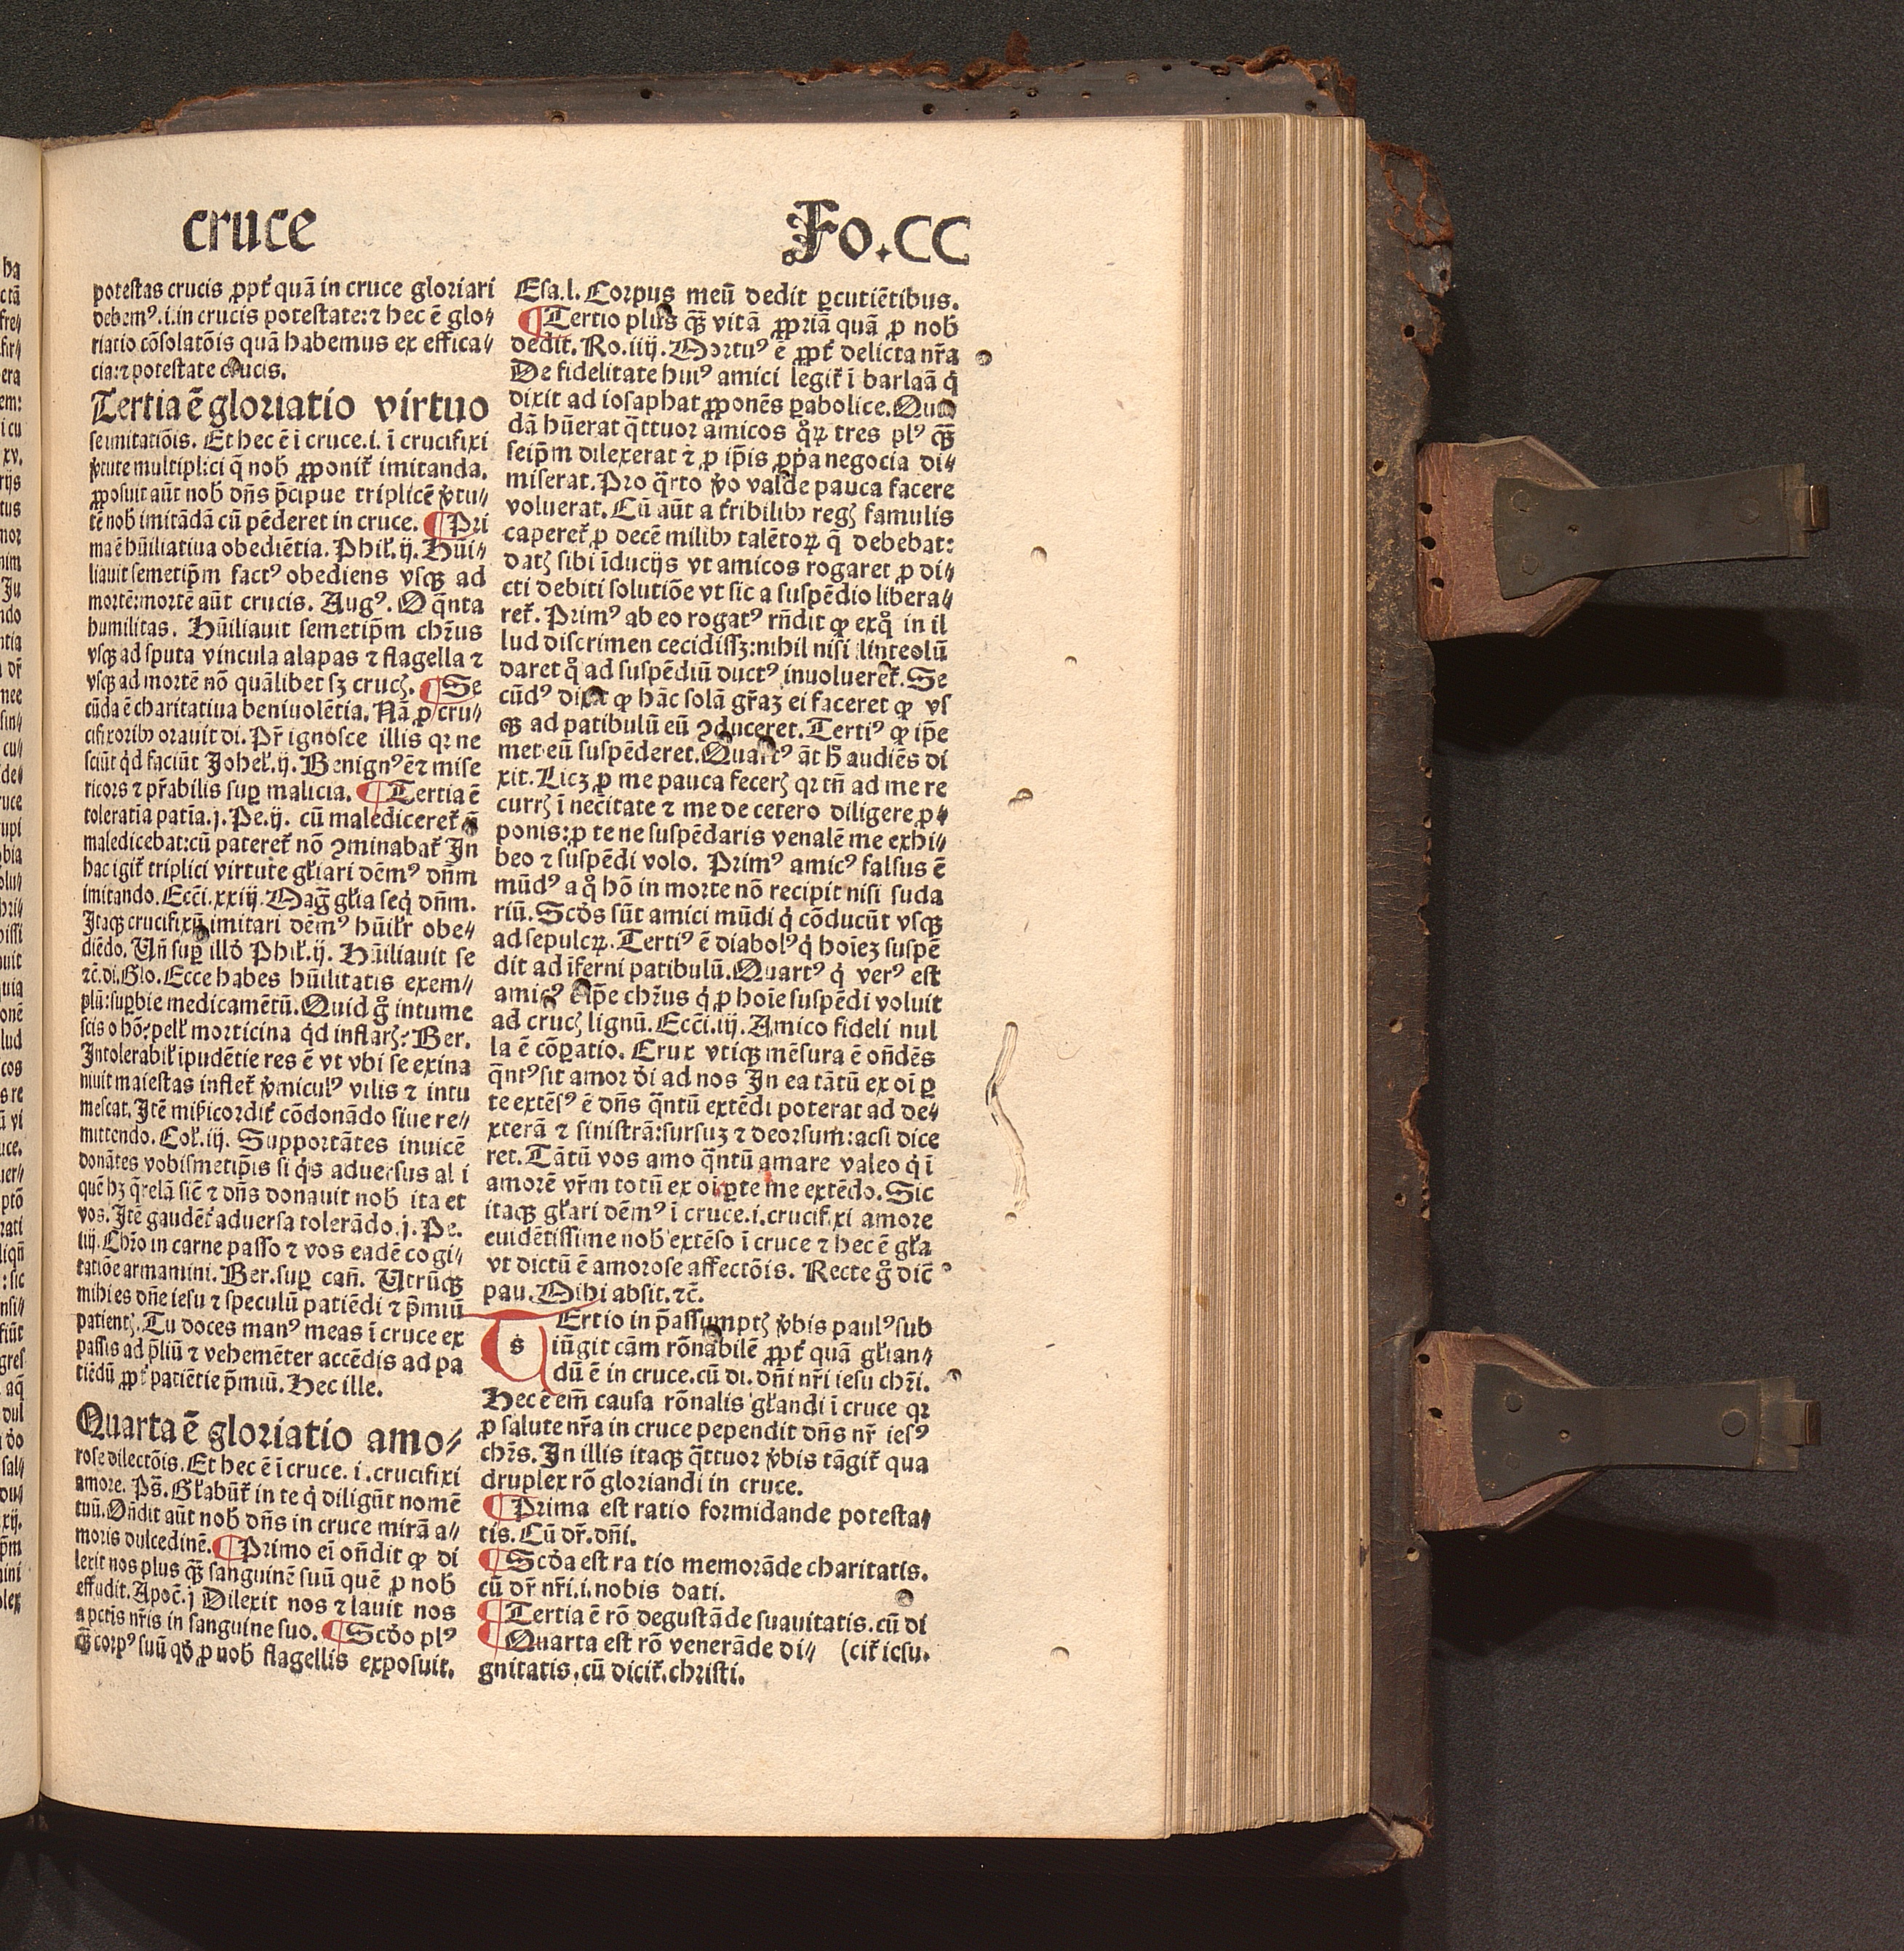 cruce
Fo.CC
potestas crucis ꝓpt̉ quã in cruce gloriari
debemꝰ.i.in crucis potestate:⁊ hec ẽ glo⸗
riatio cõsolatõis quã habemus ex effica⸗
cia:⁊ potestate crucis.
Tertia ẽ gloriatio virtuo
se imitatiõis. Et hec ẽ i cruce.i. ĩ crucifixi
ꝟtute multiplici q̃ nob̄ ꝓponit̉ imitanda.
ꝓposuit aũt nob̄ dñs p̃cipue triplicẽ ꝟtu⸗
tẽ nob̄ imitãdã cũ pẽderet in cruce. ¶ Pri
ma ẽ hũiliatiua obediẽtia. Phil̉.ij. Hũi⸗
liauit semetip̃m factꝰ obediens vsqꝫ ad
mortẽ:mortẽ aũt crucis. Augꝰ. O q̃nta
humilitas. Hũiliauit semetip̃m chr̃us
vsqꝫ ad sputa vincula alapas ⁊ flagella ⁊
vsqꝫ ad mortẽ nõ quãlibet sꝫ crucꝭ. ¶ Se
cũda ẽ charitatiua beniuolẽtia. Nã ꝓ cru⸗
cifixoribꝰ orauit di. Pr̃ ignosce illis qꝛ ne
sciũt qd̉ faciũt Johel̉.ij. Benignꝰ ẽ ⁊ mise
ricors ⁊ pr̃abilis suꝑ malicia. ¶ Tertia ẽ
toleratia patia.j. Pe.ij. cũ malediceret̉ ñ
maledicebat:cũ pateret̉ nõ ꝯminabat̉ In
hac igit̉ triplici virtute gl̉iari dẽmꝰ dñm
imitando. Ecci.xxiij. Mag̃ gl̉ia seq̉ dñm.
Itaqꝫ crucifixũ imitari dẽmꝰ hũil̉r obe⸗
diẽdo. Uñ suꝑ illd̉ Phil̉.ij. Hũiliauit se
⁊c̃.di.Glo. Ecce habes hũilitatis exem⸗
plũ:suꝑbie medicamẽtũ. Quid g̊ intume
scis o hõ:pell̉ morticina qd̉ inflarꝭ: Ber.
Intolerabil̉ ipudẽtie res ẽ vt vbi se exina
niuit maiestas inflet̉ ꝟmiculꝰ vilis ⁊ intu
mescat. Itẽ mis̉icordit̉ cõdonãdo siue re⸗
mittendo. Col̉.iij. Supportãtes inuicẽ
donãtes vobismetip̃is si q̉s aduersus al i
quẽ hꝫ q̃relã sic̃ ⁊ dñs donauit nob̄ ita et
vos. Itẽ gaudẽt̉ aduersa tolerãdo.j. Pe.
iiij. Chr̃o in carne passo ⁊ vos eadẽ cogi⸗
tatiõe armamini. Ber.suꝑ cañ. Utrũqꝫ
mihi es dñe iesu ⁊ speculũ patiẽdi ⁊ p̃miũ
patientꝭ. Tu doces manꝰ meas ĩ cruce ex
passis ad p̃liũ ⁊ vehemẽter accẽdis ad pa
tiẽdũ ꝓpt̉ patiẽtie p̃miũ. Hec ille.
Quarta ẽ gloriatio amo⸗
rose dilectõis. Et hec ẽ ĩ cruce. i .crucifixi
amore. Ps̃. Gl̉abũt̉ in te q̉ diligũt nomẽ
tuũ. Oñdit aũt nob̄ dñs in cruce mirã a⸗
moris dulcedinẽ. ¶ Primo eĩ oñdit ꝙ di
lexit nos plus qꝫ̃ sanguinẽ suũ quẽ ꝓ nob̄
effudit. Apoc̃.j Dilexit nos ⁊ lauit nos
a pctĩs nr̃is in sanguine suo. ¶ Scd̉o plꝰ
qꝫ̃ corpꝰ suũ qd̉ ꝓ nob̄ flagellis exposuit.
Esa.l. Corpus meũ dedit ꝑcutiẽtibus.
¶ Tertio plus qꝫ̃ vitã ꝓpriã quã ꝓ nob̄
dedit. Ro.iiij. Mortuꝰ ẽ ꝓpt̉ delicta nr̃a
De fidelitate huiꝰ amici legit̉ ĩ barlaã q̉
dixit ad iosaphat ꝓponẽs ꝑabolice. Qui
dã hũerat q̃ttuor amicos q̊ꝝ tres plꝰ qꝫ̃
seip̃m dilexerat ⁊ ꝓ ip̃is ꝓp̉a negocia di⸗
miserat. Pro q̃rto ꝟo valde pauca facere
voluerat. Cũ aũt a t̉ribilibꝰ regꝭ famulis
caperet̉ ꝓ decẽ milibꝰ talẽtoꝝ q̃ debebat:
datꝭ sibi ĩducijs vt amicos rogaret ꝓ di⸗
cti debiti solutiõe vt sic a suspẽdio libera⸗
ret̉. Primꝰ ab eo rogatꝰ rñdit ꝙ exq̊ in il
lud discrimen cecidissꝫ:nihil nisi linteolũ
daret q̊ ad suspẽdiũ ductꝰ inuolueret̉. Se
cũdꝰ dixit ꝙ hãc solã gr̃aꝫ ei faceret ꝙ vs
qꝫ ad patibulũ eũ ꝯduceret. Tertiꝰ ꝙ ip̃e
met eũ suspẽderet. Quartꝰ ãt h̄ audiẽs di
xit. Licꝫ ꝓ me pauca fecerꝭ qꝛ tñ ad me re
currꝭ ĩ nec̃itate ⁊ me de cetero diligere ꝓ⸗
ponis:ꝓ te ne suspẽdaris venalẽ me exhi⸗
beo ⁊ suspẽdi volo. Primꝰ amicꝰ falsus ẽ
mũdꝰ a q̊ hõ in morte nõ recipit nisi suda
riũ. Scd̉s sũt amici mũdi q̉ cõducũt vsqꝫ
ad sepulcꝝ. Tertiꝰ ẽ diabolꝰ q̉ hoĩeꝫ suspẽ
dit ad ĩferni patibulũ. Quartꝰ q̉ verꝰ est
amicꝰ ẽ ip̃e chr̃us q̉ ꝓ hoĩe suspẽdi voluit
ad crucꝭ lignũ. Ecci.iij. Amico fideli nul
la ẽ cõꝑatio. Crux vtiqꝫ mẽsura ẽ oñdẽs
q̃ntꝰ sit amor d̉i ad nos In ea tãtũ ex oĩ ꝑ
te extẽsꝰ ẽ dñs q̃ntũ extẽdi poterat ad de⸗
xterã ⁊ sinistrã:sursuꝫ ⁊ deorsum:acsi dice
ret. Tãtũ vos amo q̃ntũ amare valeo q̉ ĩ
amorẽ vr̃m totũ ex oĩ ꝑte me extẽdo. Sic
itaqꝫ gl̉ari dẽmꝰ ĩ cruce.i.crucifixi amore
euidẽtissime nob̄ extẽso ĩ cruce ⁊ hec ẽ gl̉a
vt dictũ ẽ amorose affectõis. Recte g̊ dic̃
pau. Mihi absit.⁊c̃.
TErtio in p̃assumptꝭ ꝟbis paulꝰ sub
iũgit cãm rõnabilẽ ꝓpt̉ quã gl̉ian⸗
dũ ẽ in cruce.cũ di. dñi nr̃i iesu chr̃i.
Hec ẽ em̃ causa rõnalis gl̉andi ĩ cruce qꝛ
ꝓ salute nr̃a in cruce pependit dñs nr̃ iesꝰ
chr̃s. In illis itaqꝫ q̃ttuor ꝟbis tãgit̉ qua
druplex rõ gloriandi in cruce.
¶ Prima est ratio formidande potesta⸗
tis. Cũ dr̃.dñi.
¶ Scd̉a est ra tio memorãde charitatis.
cũ dr̃ nr̃i.i.nobis dati.
¶ Tertia ẽ rõ degustãde suauitatis.cũ di
¶ Quarta est rõ venerãde di⸗ (cit̉ iesu.
gnitatis.cũ dicit̉.christi.